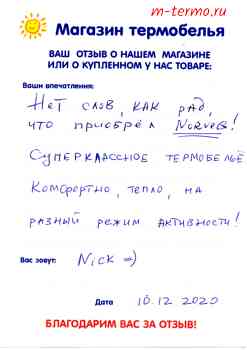 m-termo.ru
Магазин термобелья
ВАШ ОТЗЫВ О НАШЕМ МАГАЗИНЕ
ИЛИ О КУПЛЕННОМ У НАС ТОВАРЕ:
Ваши впечатления:
Нет слов, как рад,
что приобрёл Norveg!
Суперклассное термобельё
Комфортно, тепло, на
разный режим активности!
Вас зовут: Nick =)
Дата 10.12 2020
БЛАГОДАРИМ ВАС ЗА ОТЗЫВ!